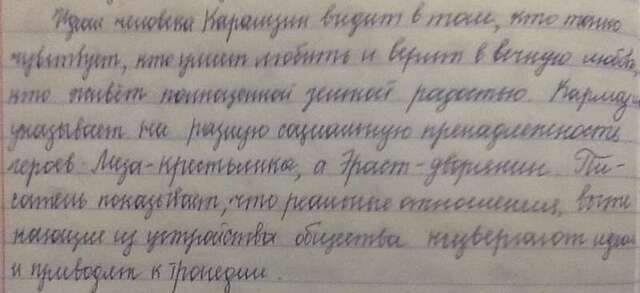 Идеал человека Карамзин видит в том, кто тонко
чувствует, кто умеет любить и верит в вечную любовь,
кто живёт полноценной земной радостью. Карамзин
указывает на разную социальную пренадлежность
героев. Лиза-крестьянка, а Эраст-дворянин. Пи-
сатель показывает, что реальные отношения, выте
кающие из устройства общества низвергают идеал
и приводят к трогедии.